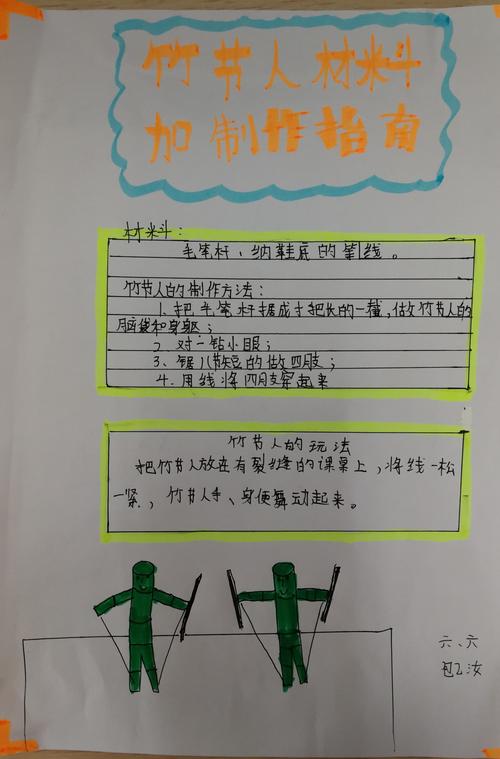 竹节人材料
加制作指南
材料:
毛笔杆、纳鞋底的线。
竹节人的制作方法:
1、把毛笔杆据成寸把长的一截,做竹节人的
脑袋和身躯;
2、对一钻小眼;
3、锯八节短的做四肢;
4、用线将四肢穿起来
竹节人的玩法
把竹节人放在有裂缝的课桌上,将线一松
一紧,竹节人手、身便舞动起来。
六、六